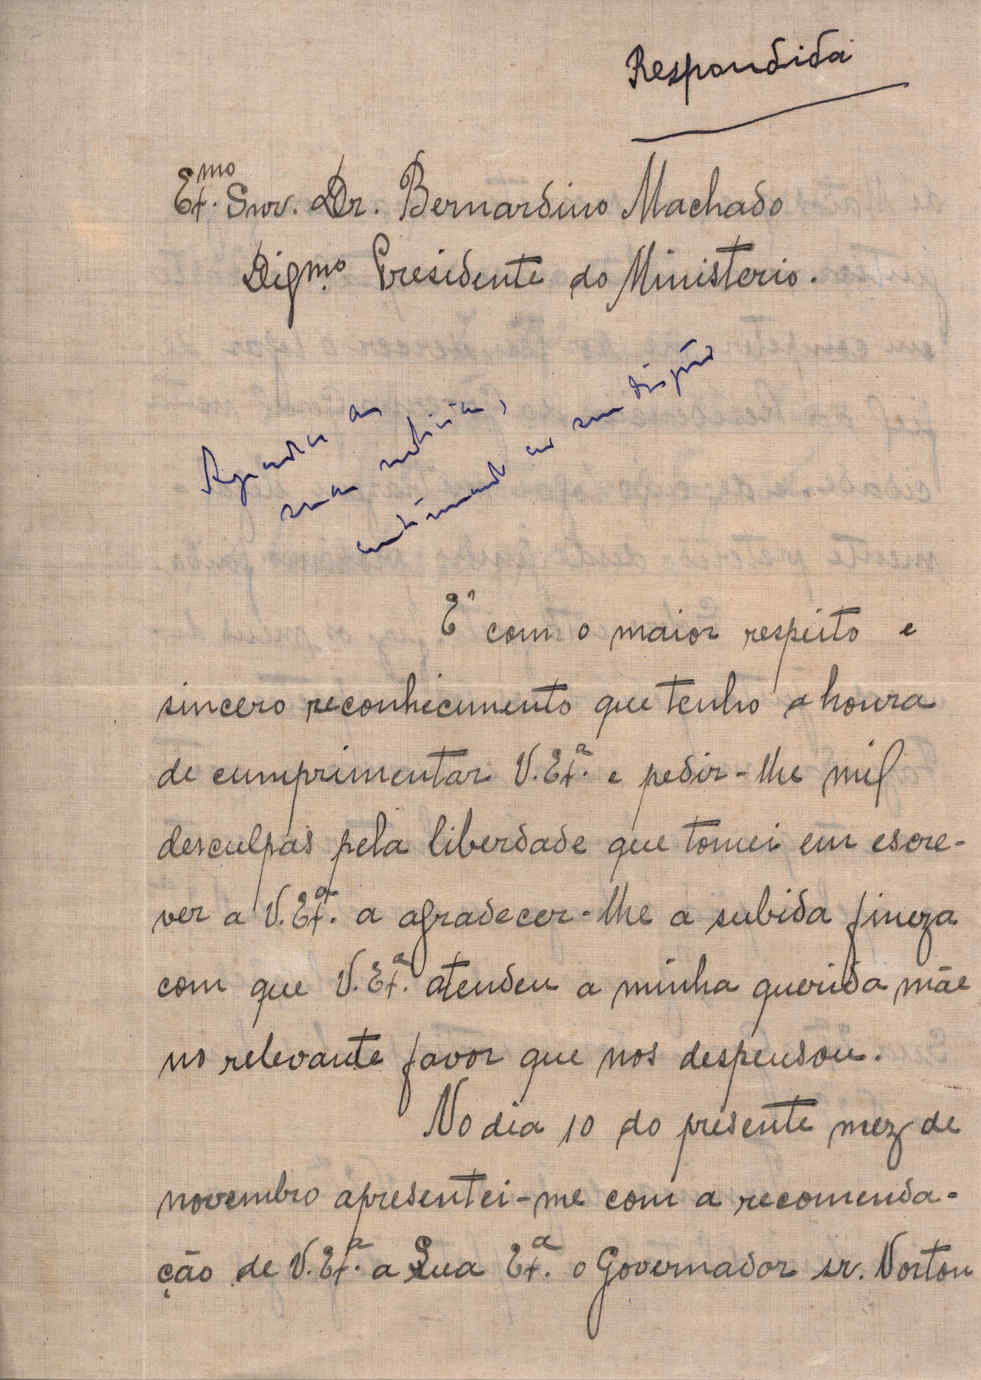 Respondida
Ex.mo Snr. Dr. Bernardino Machado
Dig.mo Presidente do Ministerio.
Agradeço as
suas noticias,
continuando ao seu dispôr
E' com o maior respeito e
sincero reconhecimento que tenho a honra
de cumprimentar V. Ex.a e pedir-lhe mil
desculpas pela liberdade que tomei em escre-
ver a V. Ex.a a agradecer-lhe a subida fineza
com que V. Ex.a atendeu a minha querida mãe
no relevante favor que nos despensou.
No dia 10 do presente mez de
novembro apresentei-me com a recomenda-
ção de V. Ex.a a Sua Ex.a o Governador sr. Norton